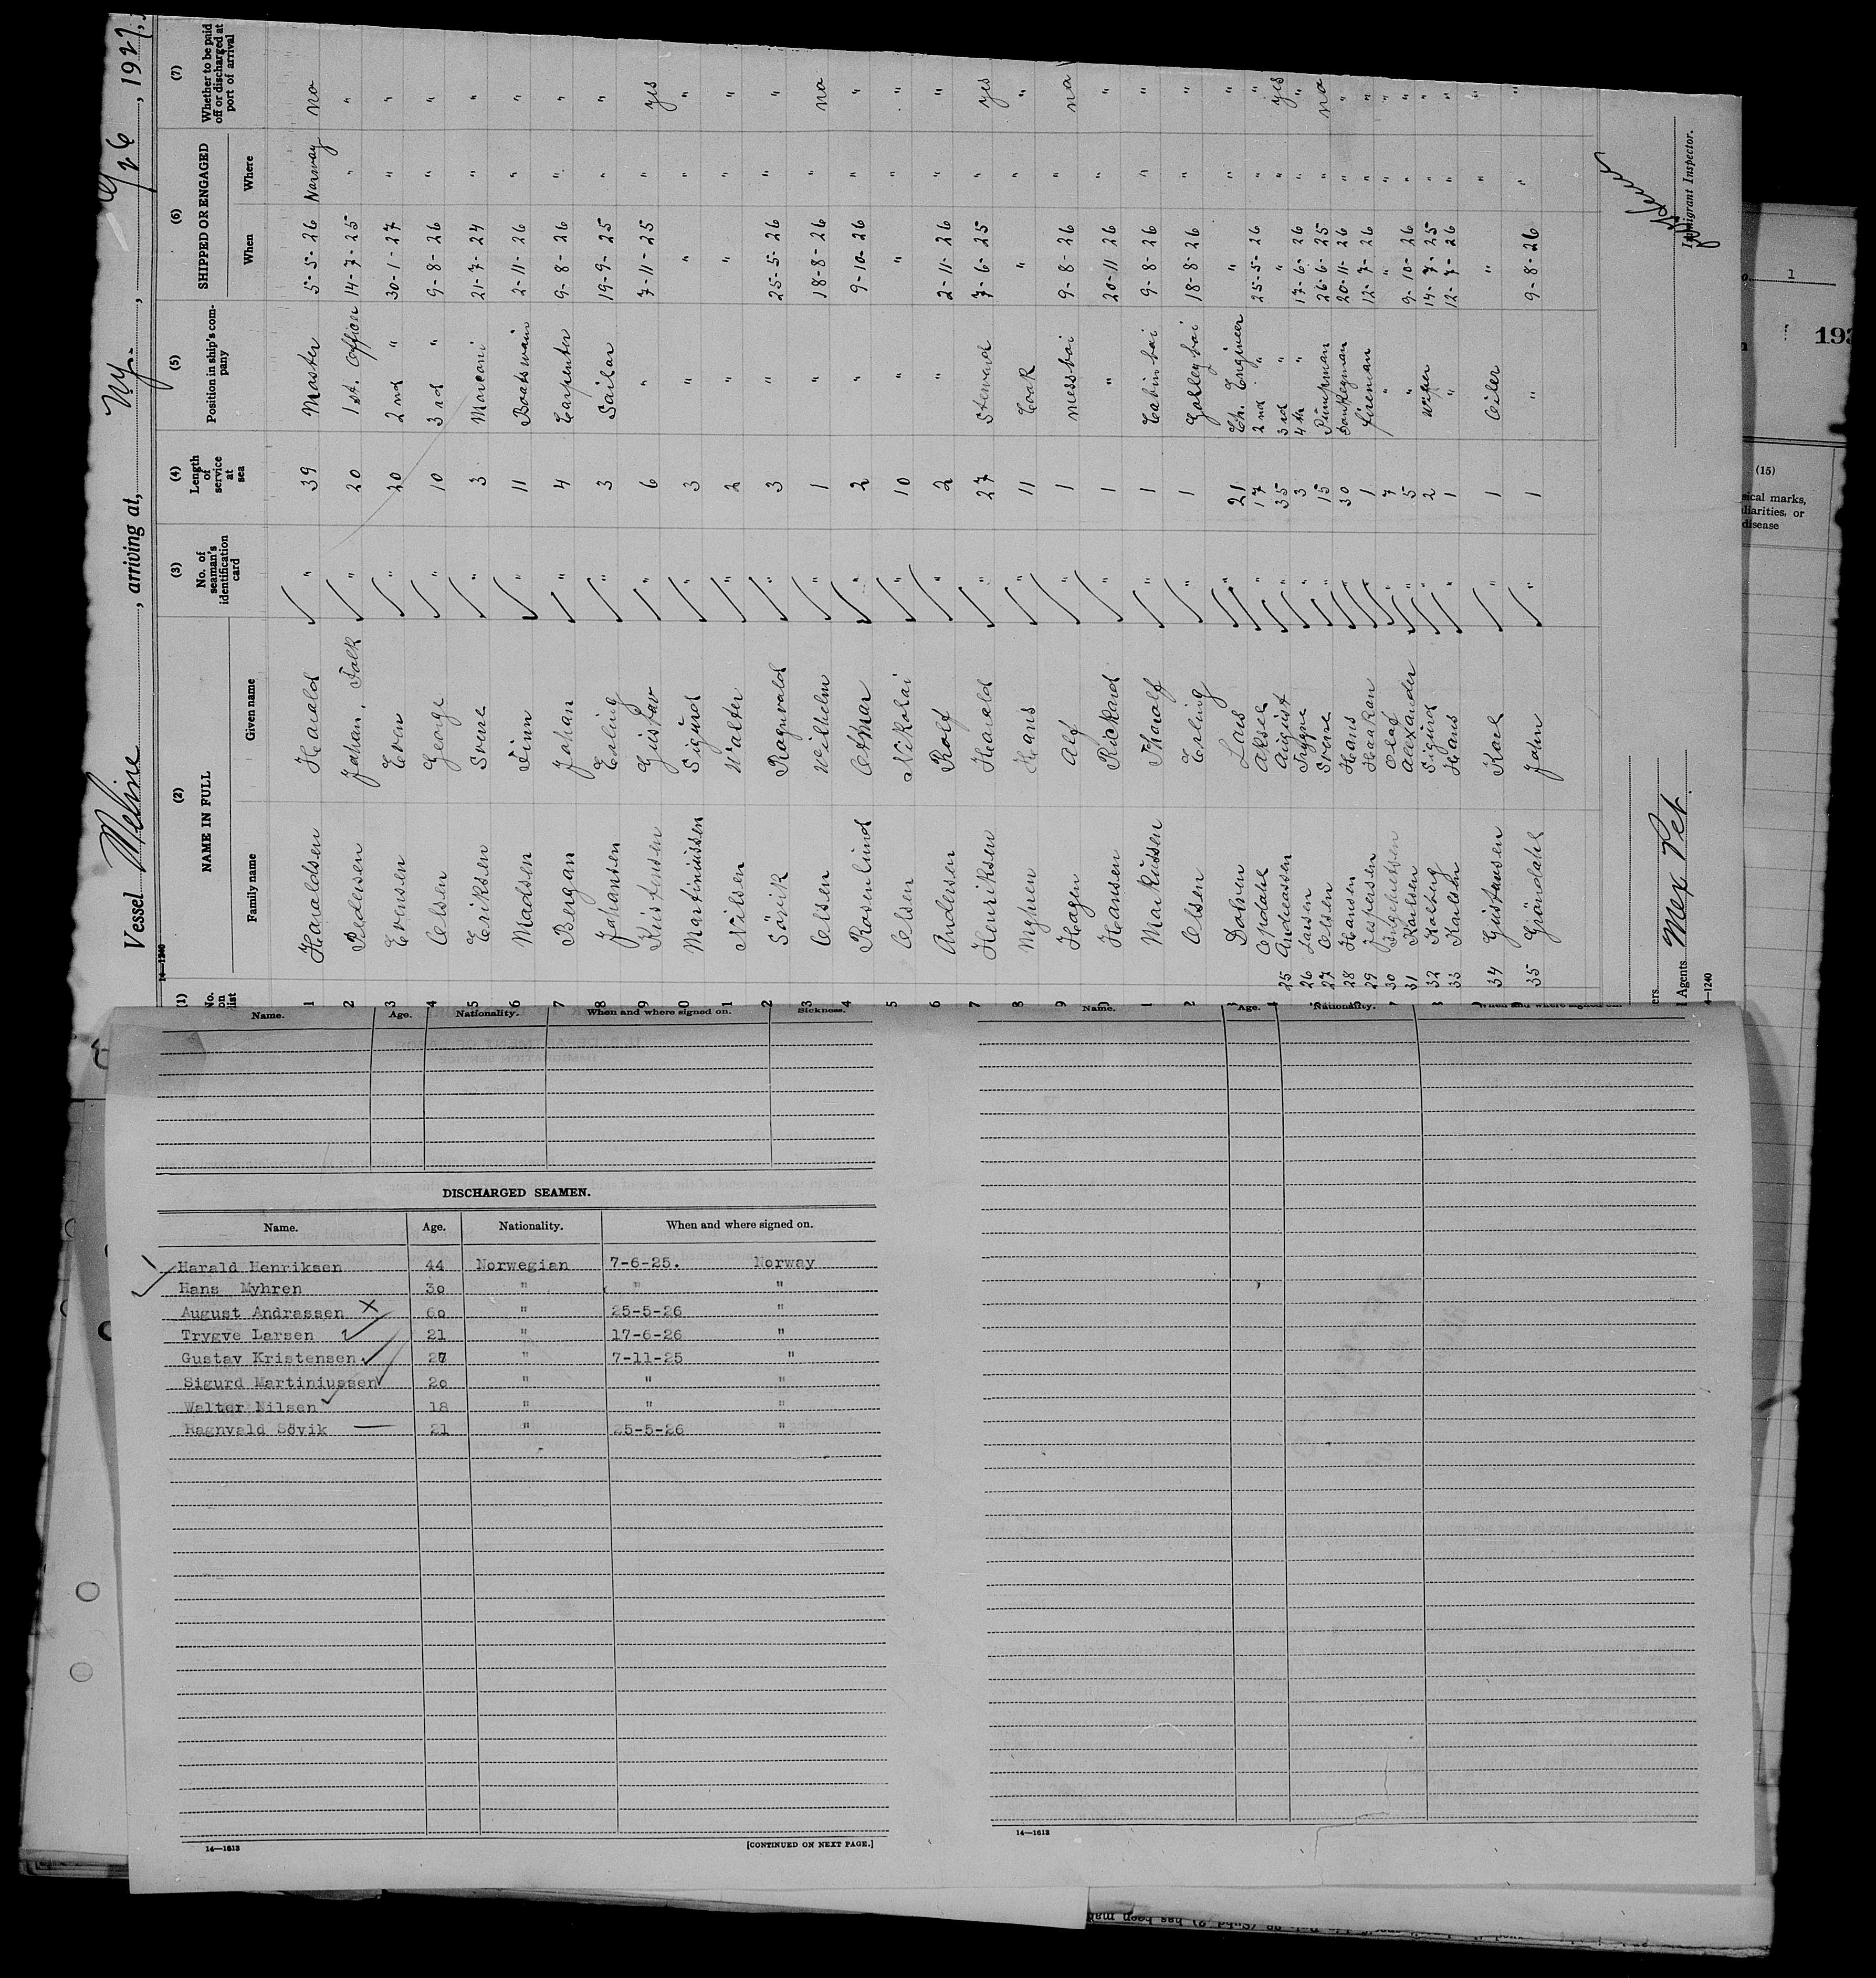 Vessel Meline, arriving at, Ny., 1927,
14—1240
(1) No. on list
(2) NAME IN FULL
Family name Given name
(3) No. of seaman's identification card
(4) Length of service at sea
(5) Position in ship's company
(6) SHIPPED OR ENGAGED
When Where
(7) Whether to be paid off or discharged at port of arrival
1 Haraldsen Harald " 39 Master 5-5-26 Norway no
2 Pedersen Johan. Falk " 20 1st. Officer 14-7-25 " "
3 Evensen Even " 20 2nd " 30-1-27 " "
4 Olsen George " 10 3rd " 9-8-26 " "
5 Eriksen Sverre " 3 Marconi 21-7-24 " "
6 Madsen Finn " 11 Boatswain 2-11-26 " "
7 Bergan Johan " 4 Carpenter 9-8-26 " "
8 Johansen Erling " 3 Sailor 19-9-25 " "
9 Kristensen Gustav " 6 " 7-11-25 " yes
0 Martiniussen Sigurd " 3 " " " "
1 Nilssen Walter " 2 " " "
2 Sövik Ragnvald " 3 " 25-5-26 " "
3 Olsen Wilhelm " 1 " 18-8-26 " no
4 Rosenlund Otmar " 2 " 9-10-26 " "
5 Olsen Nikolai " 10 " " " "
6 Andersen Rolf " 2 " 2-11-26 " "
7 Henriksen Harald " 27 Steward 7-6-25 " yes
8 Myhren Hans " 11 Cook " " "
9 Haagen Alf " 1 Messboi 9-8-26 " no
0 Hansen Rickard " 1 " 20-11-26 " "
1 Markussen Tharalf " 1 Cabinboi 9-8-26 " "
2 Olsen Erling " 1 Galleyboi 18-8-26 " "
3 Dolven Lars " 21 Ch. Engineer " " "
4 Opdahl Aksel " 17 2nd " 25-5-26 " "
25 Andreassen August " 35 3rd " " yes
26 Larsen Trygve " 3 4th " 17-6-26 " "
27 Olsen Sverre " 15 Pumpman 26-6-25 " no
28 Hansen Hans " 30 Donkeyman 20-11-26 " "
29 Jespersen Haakon " 1 fireman 12-7-26 " "
30 Ingebretsen Olaf " 7 " " " "
31 Karlsen Alexander " 5 " 9-10-26 " "
32 Kolberg Sigurd " 2 Wiper 14-7-25 " "
33 Karlsen Hans " 1 " 12-7-26 " "
34 Gustavsen Karl " 1 Oiler " " "
35 Gjöndahl John " 1 " 9-8-26 " "
Agents Mex Pet.
Immigrant Inspector.
4—1240
1
193
(15)
sical marks,
liarities, or
disease
Name. Age. Nationality. When and where signed on. Sickness.
DISCHARGED SEAMEN.
Name. Age. Nationality. When and where signed on.
Harald Henriksen 44 Norwegian 7-6-25. Norway
Hans Myhren 30 " " "
August Andrassen X 60 " 25-5-26 "
Trygve Larsen 21 " 17-6-26 "
Gustav Kristensen 27 " 7-11-25 "
Sigurd Martiniussen 20 " " "
Walter Nilsen 18 " " "
Ragnvald Sövik 21 " 25-5-26 "
14—1613 [CONTINUED ON NEXT PAGE.]
Name. Age. Nationality. When and where signed on.
14—1613